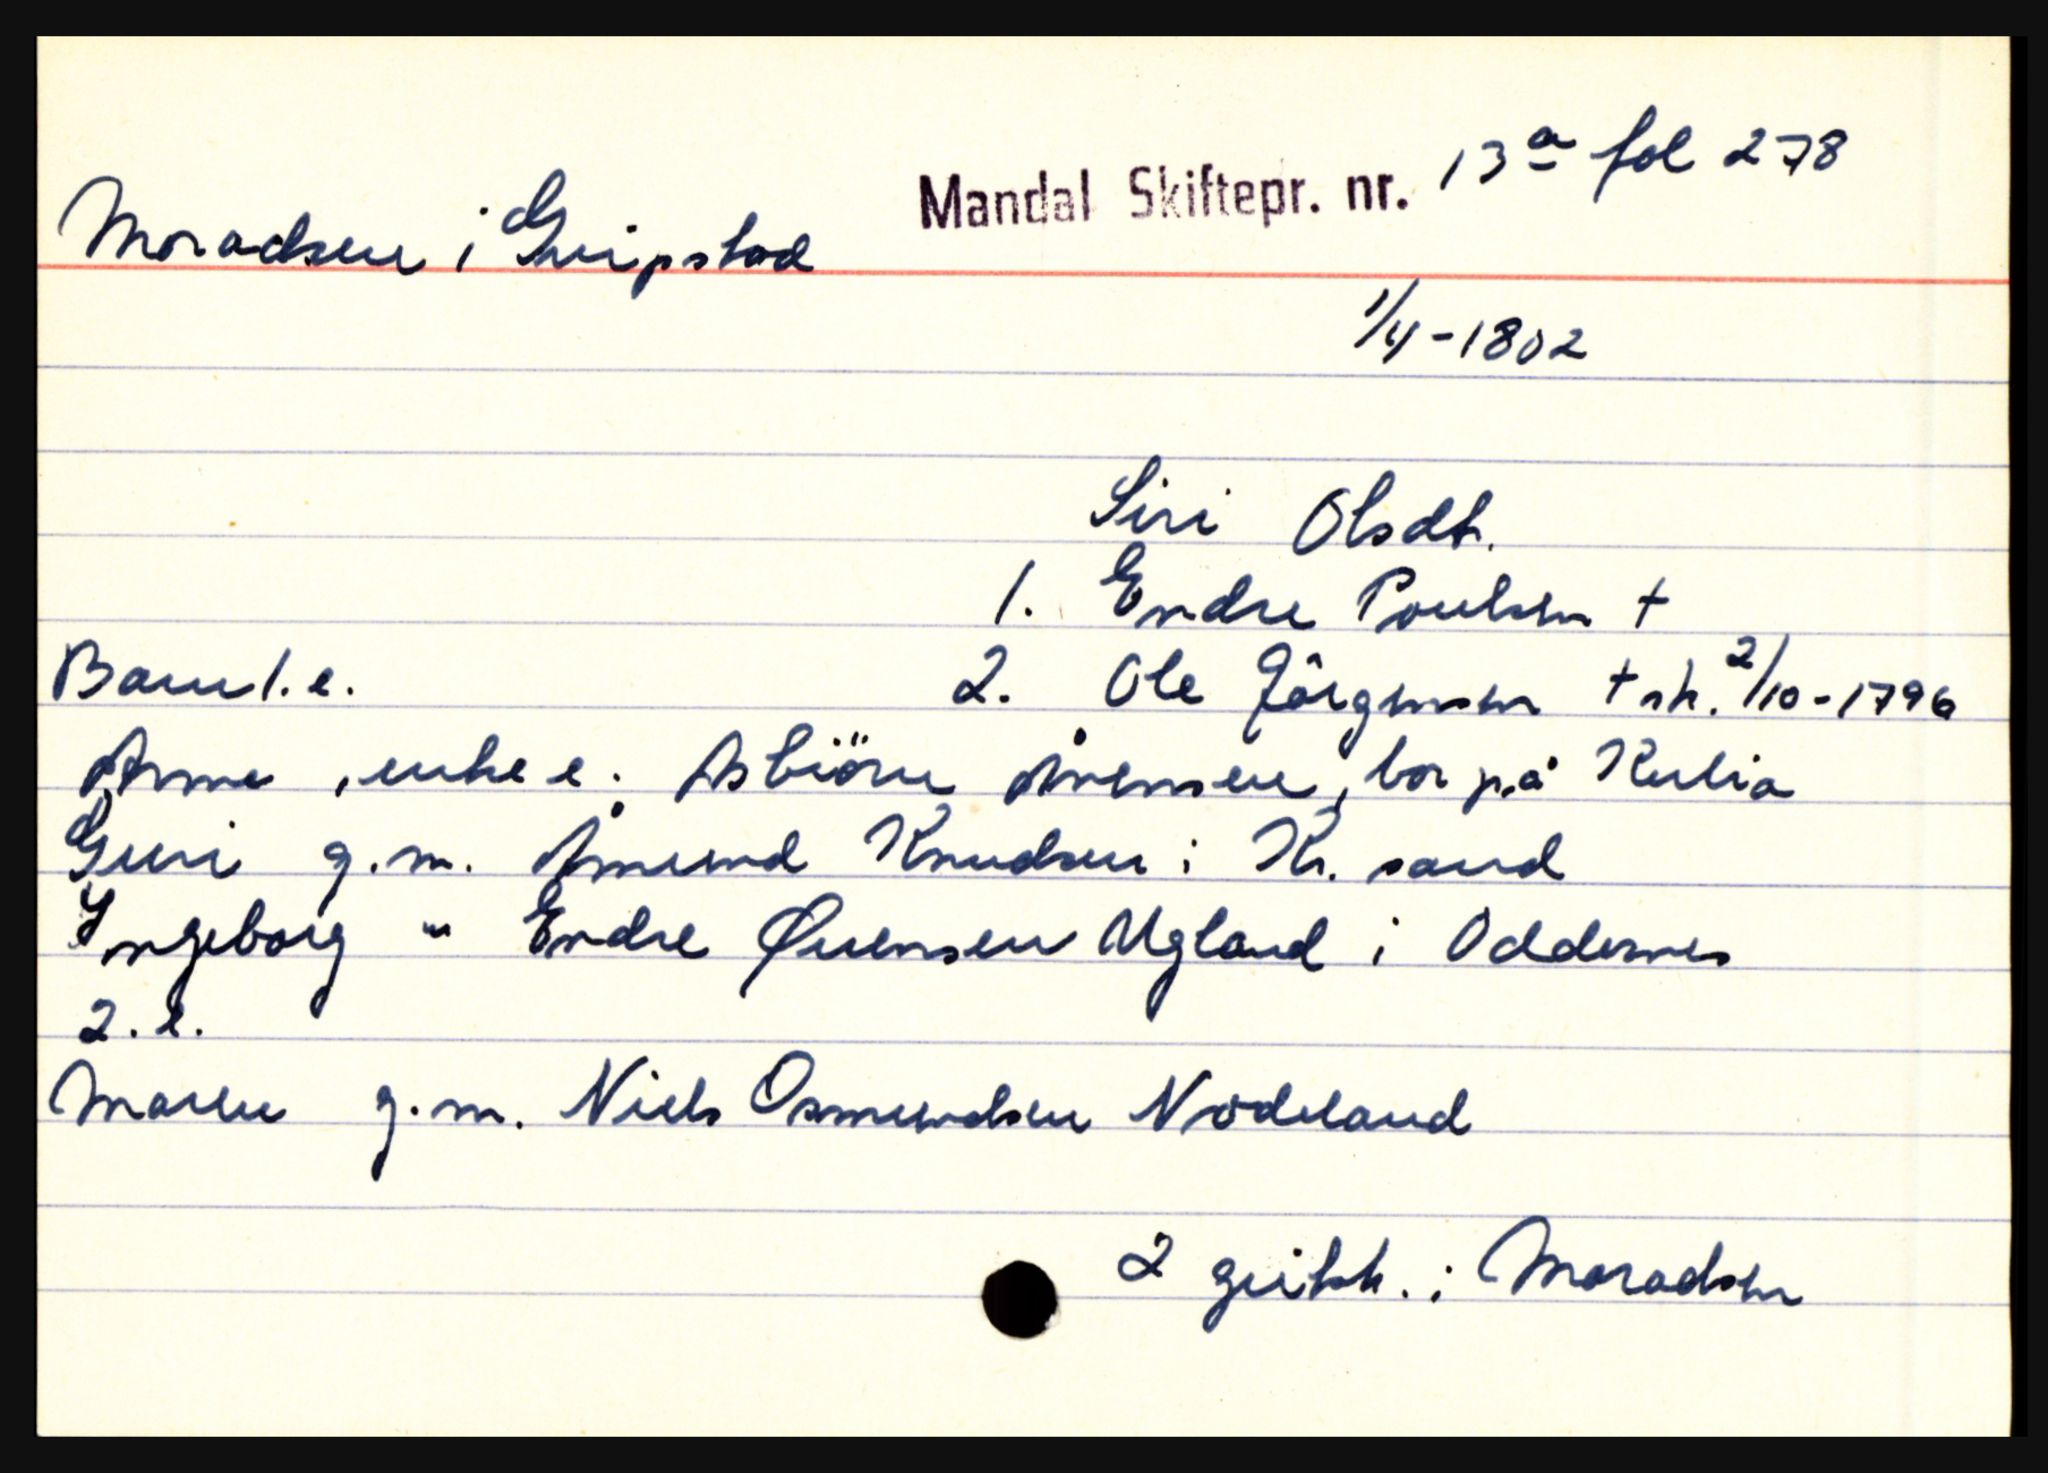 Mandal Skiftepr. nr. 13a fol 278
Moradsen i Greipstad
1/4-1802
Siri Olsdt.
1. Endre Poulsen +
Barn 1. e. 2. Ole Jörgensen + sk. 2/10-1796
Anne, enke e. Asbiörn Årensen, bor på Kulia
Guri g.m. Åmund Knudsen i Kr.sand
Ingeborg " Endre Øvensen Ugland i Oddernes
2. e.
Maren g.m. Niels Osmundsen Nodeland
2 geitsk. i Moradsen